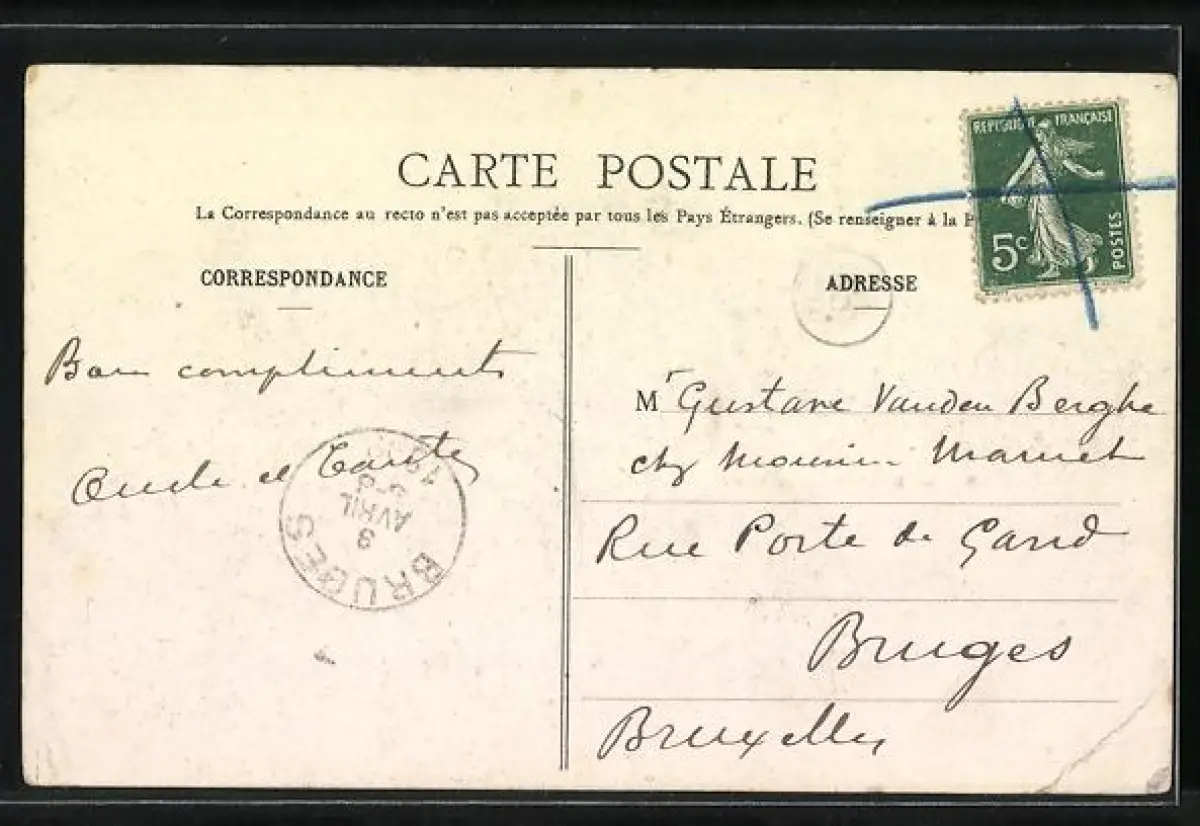 REPUBLIQUE FRANÇAISE
5c
POSTES
CARTE POSTALE
La Correspondance au recto n'est pas acceptée par tous les Pays Étrangers. (Se renseigner à la P
CORRESPONDANCE
Bons compliments
Oncle et Tante
BRUGES
9
AVRIL
ADRESSE
Mr Gustave Vanden Berghe
chez
Rue Porte de Gand
Bruges
Bruxelles